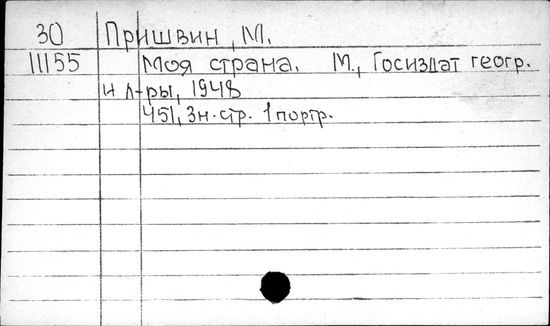 30 Пришвин, М.
11155 Моя страна. М., Госиздат геогр.
и л-ры, 1948
451, 3н.стр. 1 портр.